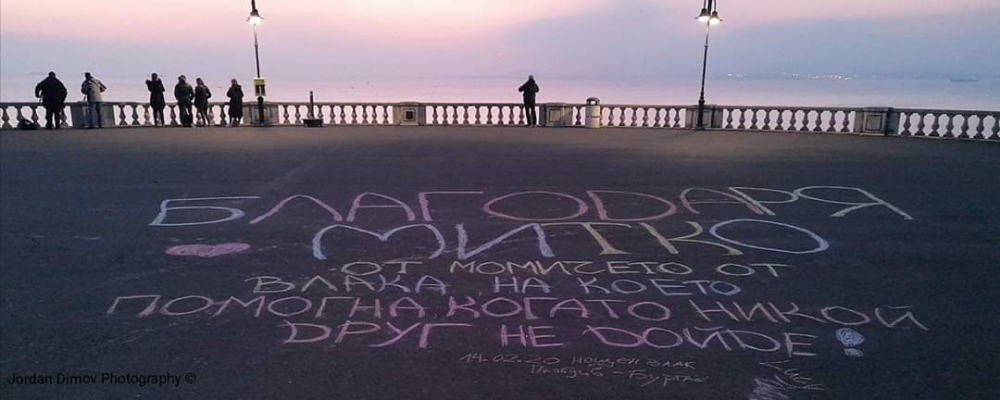 БЛАГОДАРЯ
МИТКО
ОТ МОМИЧЕТО ОТ
ВЛАКА НА КОЕТО
ПОМОГНА, КОГАТО НИКОЙ
ДРУГ НЕ ДОЙДЕ!
14.02.20 нощен влак
Пловдив - Бургас
Jordan Dimov Photography ©